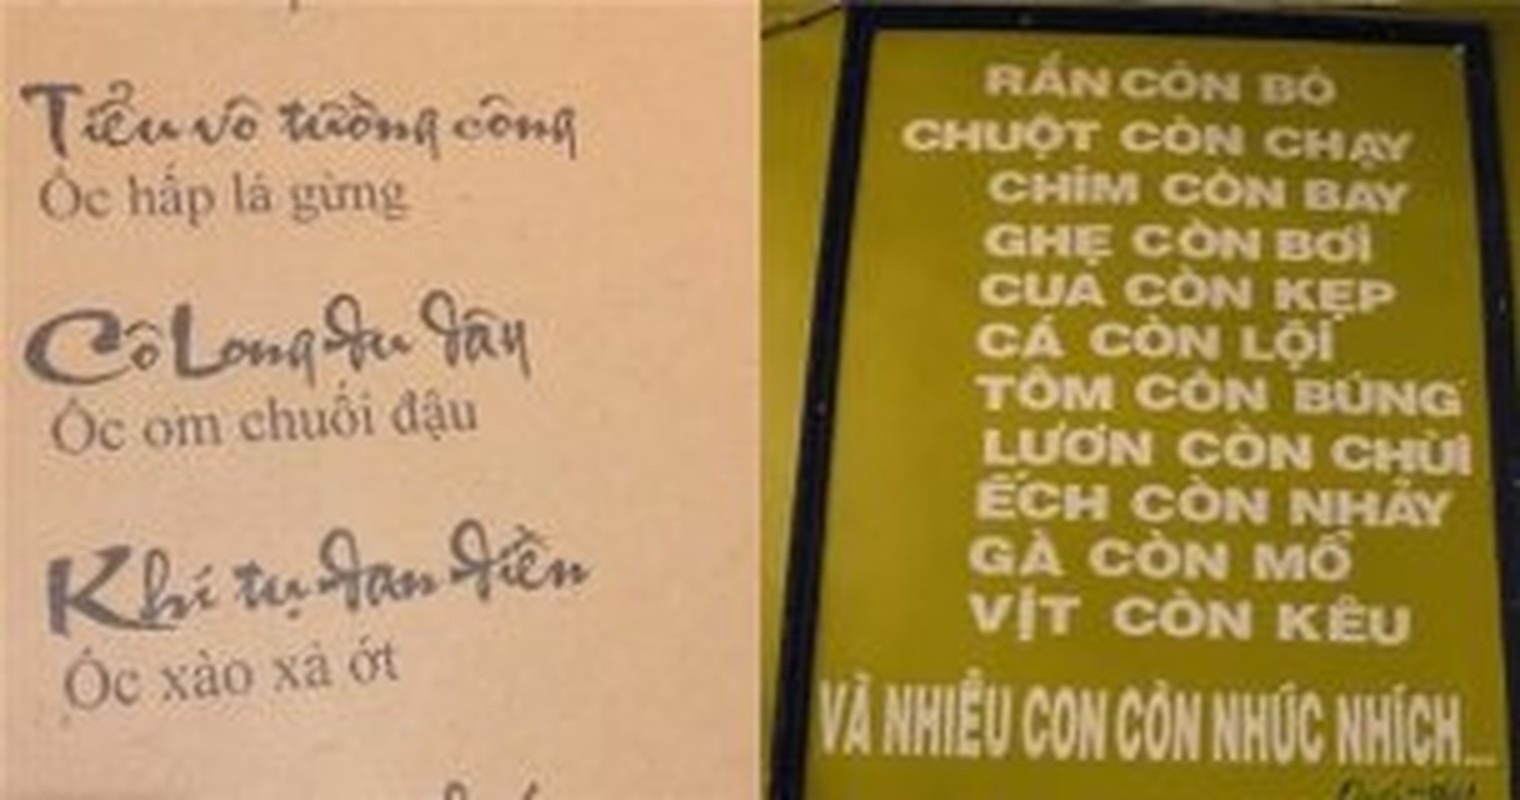 Tiểu vô tường công
Ốc hấp lá gừng
Cô Long du đây
Ốc om chuối đậu
Khí tụ đan điền
Ốc xào xả ớt
RẮN CÒN BÒ
CHUỘT CÒN CHẠY
CHIM CÒN BAY
GHẸ CÒN BƠI
CUA CÒN KẸP
CÁ CÒN LỘI
TÔM CÒN BÚNG
LƯƠN CÒN CHÙI
ẾCH CÒN NHẢY
GÀ CÒN MỔ
VỊT CÒN KÊU
VÀ NHIỀU CON CÒN NHÚC NHÍCH...